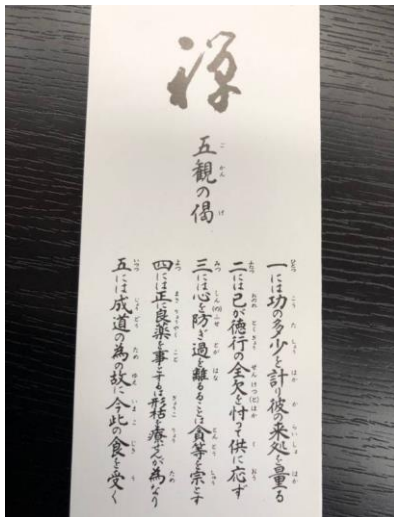 禅
五観の偈
一には功の多少を計り彼の来処を量る
二には己が徳行の全欠を忖って供に応ず
三には心を防ぎ過を離るることは貪等を宗とす
四には正に良薬を事とするは形枯を療ぜんが為なり
五には成道の為の故に今此の食を受く